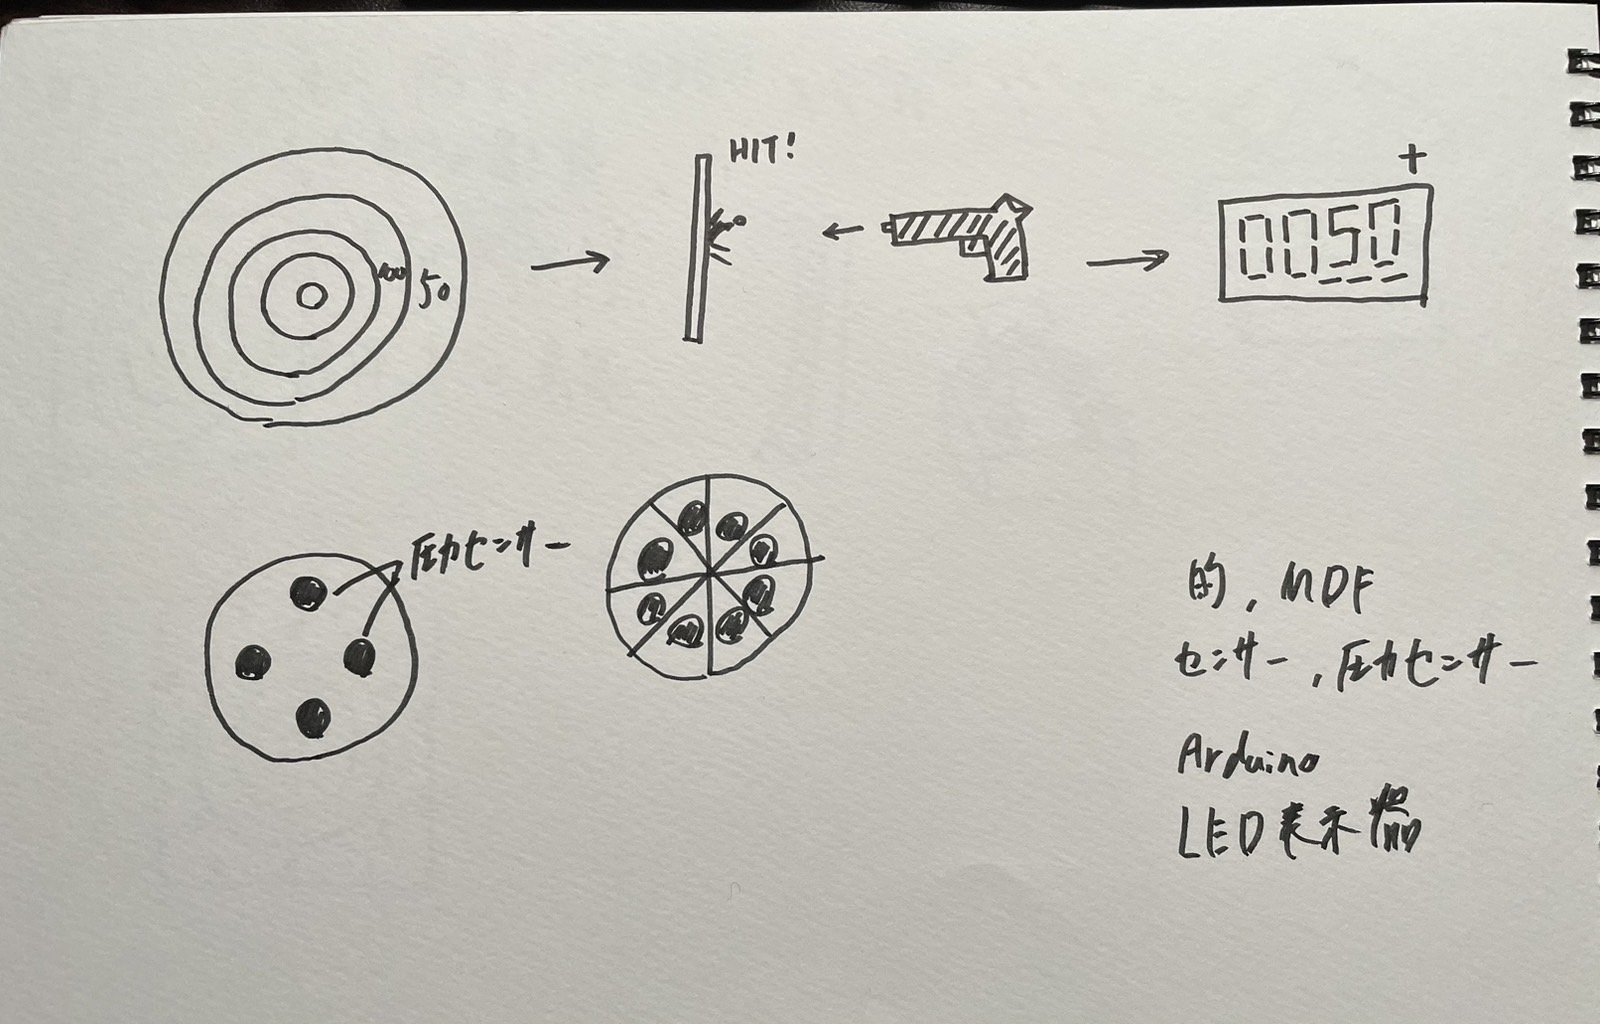 HIT!
+
100 50
0050
圧力センサー
的, MDF
センサー, 圧力センサー
Arduino
LED表示器